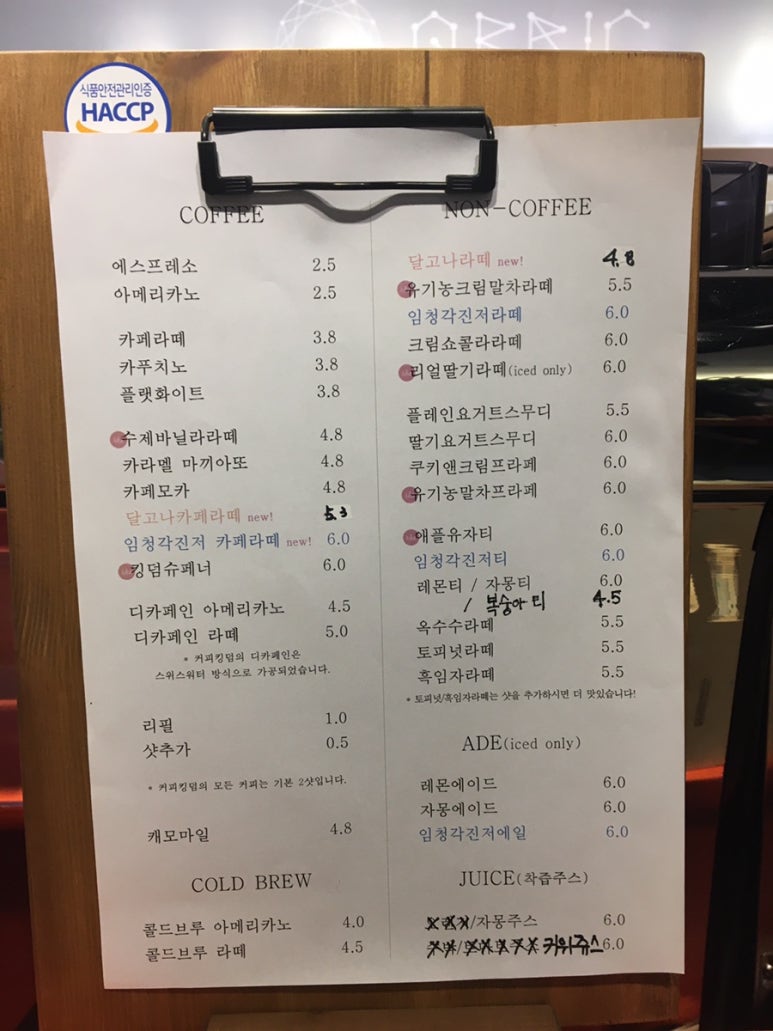 식품안전관리인증
HACCP
COFFEE
에스프레소 2.5
아메리카노 2.5
카페라떼 3.8
카푸치노 3.8
플랫화이트 3.8
수제바닐라라떼 4.8
카라멜 마끼아또 4.8
카페모카 4.8
달고나카페라떼 new! 5.3
임청각진저 카페라떼 new! 6.0
킹덤슈페너 6.0
디카페인 아메리카노 4.5
디카페인 라떼 5.0
* 커피킹덤의 디카페인은
스위스워터 방식으로 가공되었습니다.
리필 1.0
샷추가 0.5
* 커피킹덤의 모든 커피는 기본 2샷입니다.
캐모마일 4.8
COLD BREW
콜드브루 아메리카노 4.0
콜드브루 라떼 4.5
NON-COFFEE
달고나라떼 new! 4.8
유기농크림말차라떼 5.5
임청각진저라떼 6.0
크림쇼콜라라떼 6.0
리얼딸기라떼(iced only) 6.0
플레인요거트스무디 5.5
딸기요거트스무디 6.0
쿠키앤크림프라페 6.0
유기농말차프라페 6.0
애플유자티 6.0
임청각진저티 6.0
레몬티 / 자몽티 6.0
/ 복숭아 티 4.5
옥수수라떼 5.5
토피넛라떼 5.5
흑임자라떼 5.5
* 토피넛/흑임자라떼는 샷을 추가하시면 더 맛있습니다!
ADE(iced only)
레몬에이드 6.0
자몽에이드 6.0
임청각진저에일 6.0
JUICE(착즙주스)
/자몽주스 6.0
키위쥬스 6.0